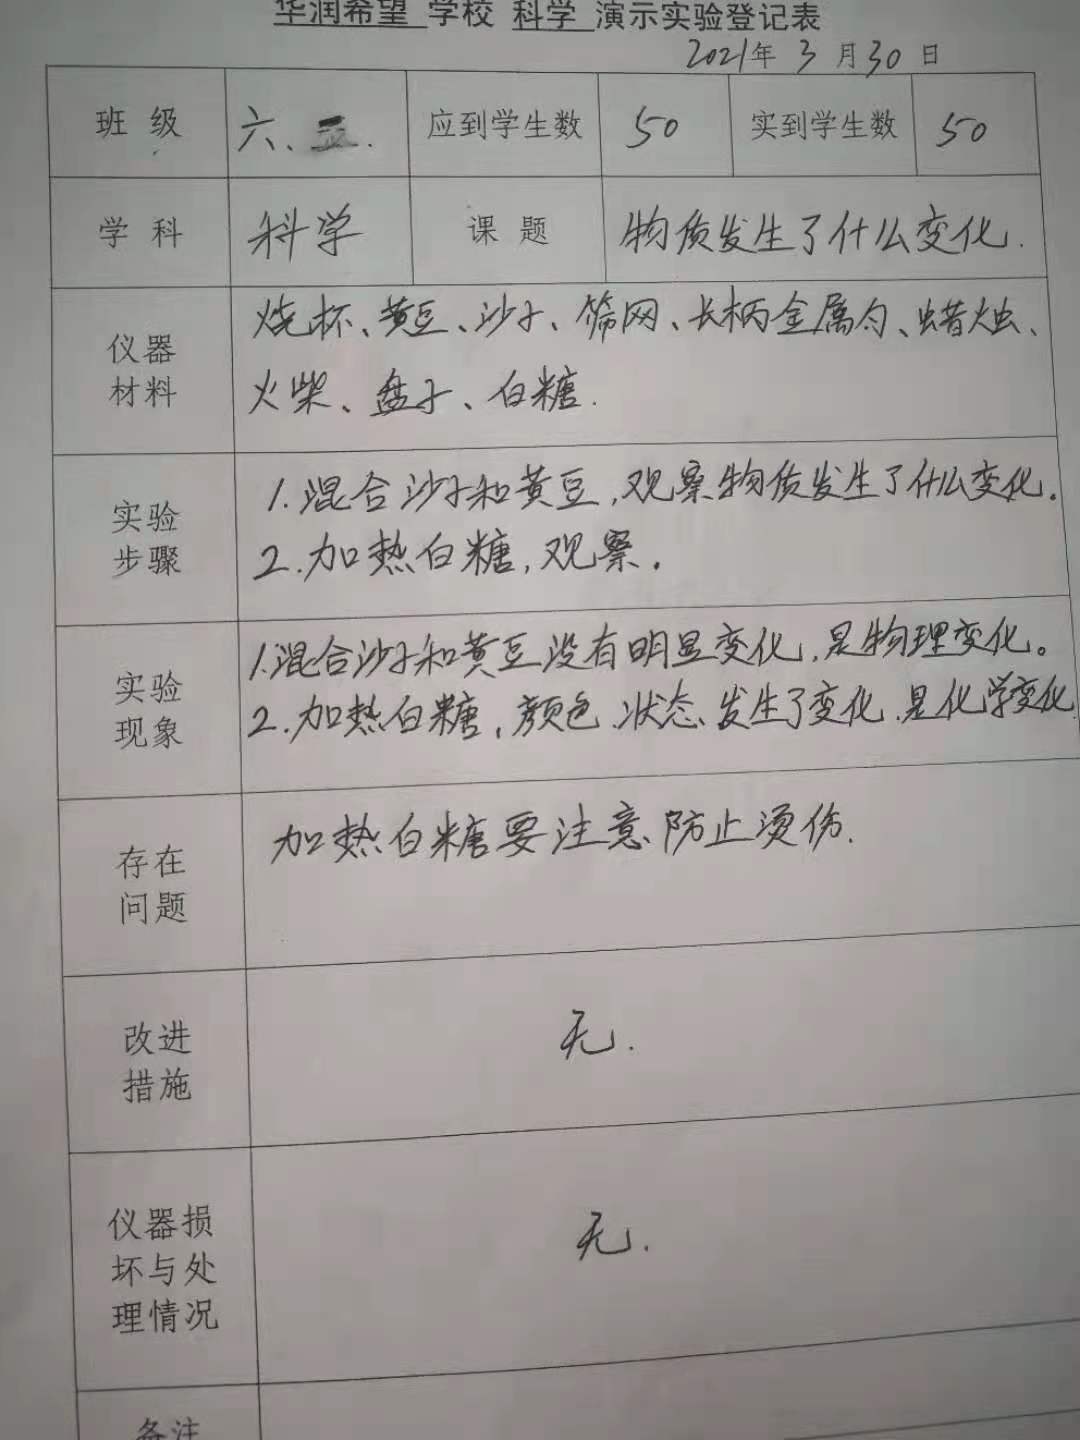 华润希望 学校 科学 演示实验登记表
2021年 3 月 30 日
班 级 六、五. 应到学生数 50 实到学生数 50
学 科 科学 课 题 物质发生了什么变化.
仪器
材料
烧杯、黄豆、沙子、筛网、长柄金属勺、蜡烛、
火柴、盘子、白糖.
实验
步骤
1.混合沙子和黄豆,观察物质发生了什么变化.
2.加热白糖,观察.
实验
现象
1.混合沙子和黄豆没有明显变化,是物理变化。
2.加热白糖,颜色、状态、发生了变化,是化学变化
存在
问题
加热白糖要注意防止烫伤.
改进
措施
无.
仪器损
坏与处
理情况
无.
备注